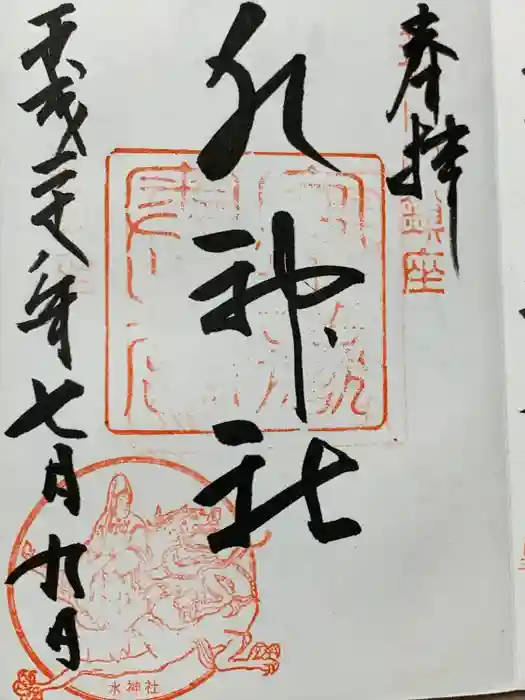 奉拝
鎮座
水神社
平成三十年七月九日
水神社